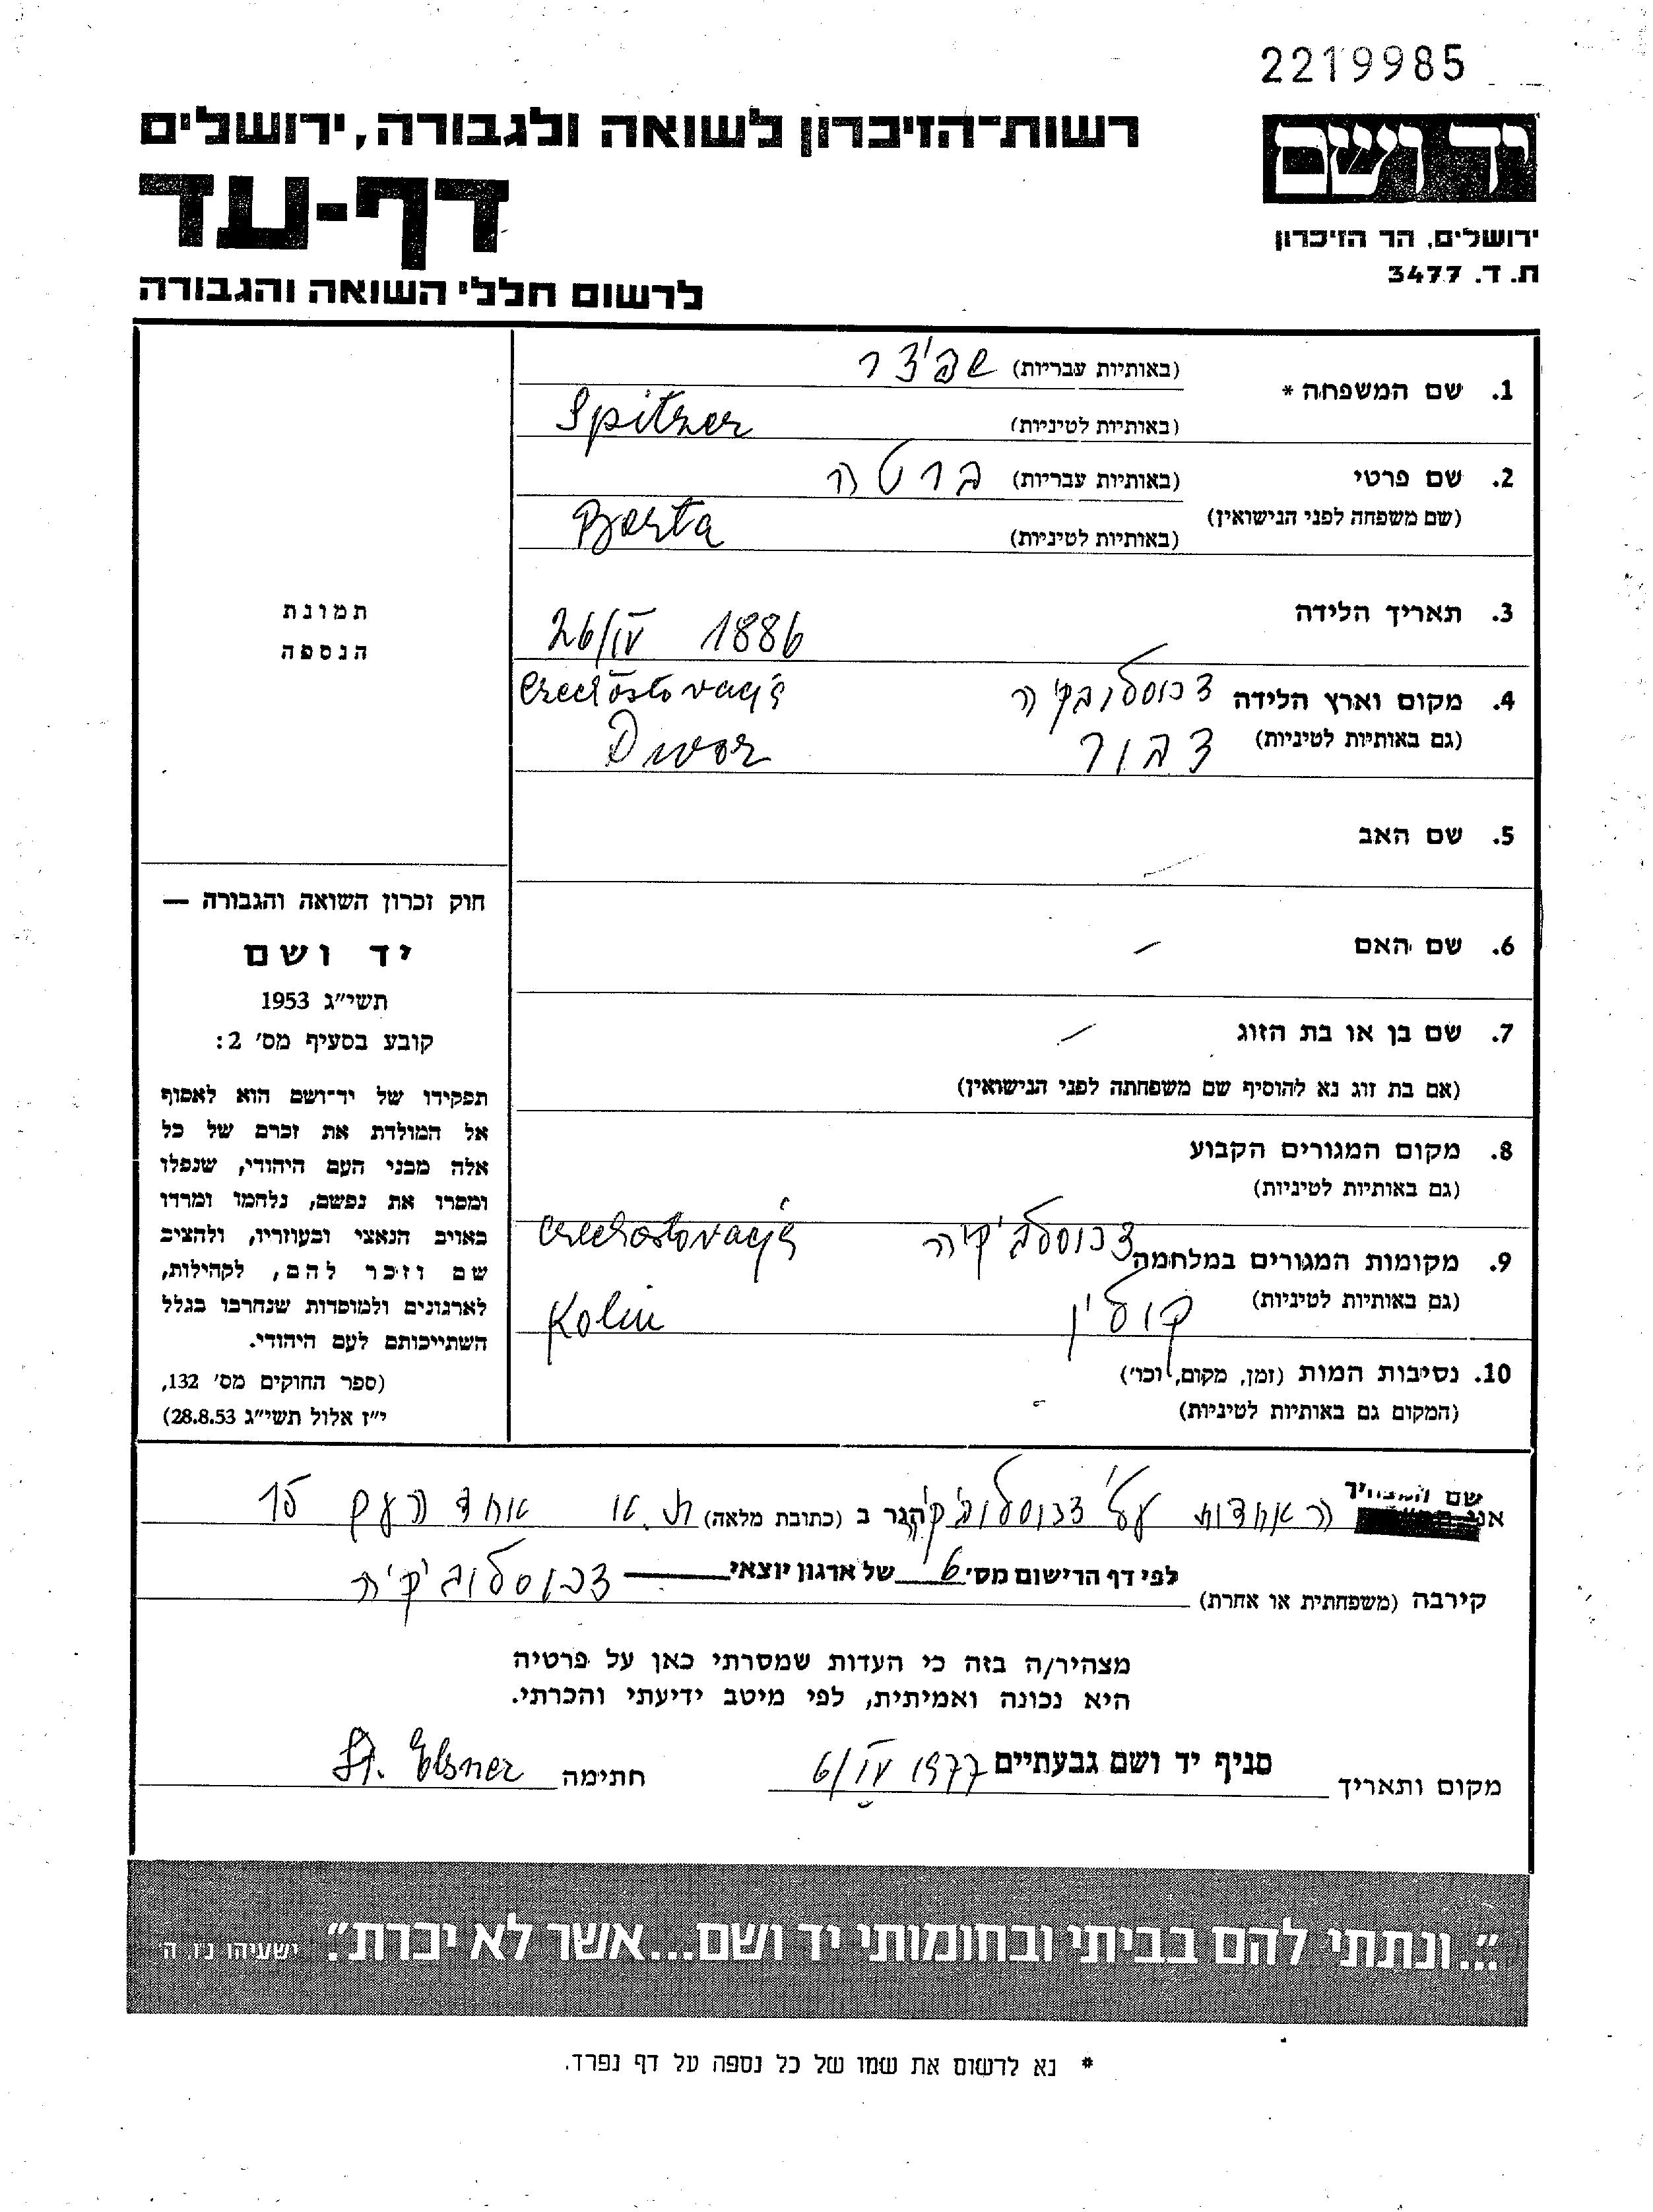 2219985
יד ושם
רשות־הזיכרון לשואה ולגבורה, ירושלים
דף-עד
ירושלים, הר הזיכרון
ת. ד. 3477
לרשום חללי השואה והגבורה
1. שם המשפחה * (באותיות עבריות) שפיצר
(באותיות לטיניות) Spitzer
2. שם פרטי (באותיות עבריות) ברטה
(שם משפחה לפני הנישואין)
(באותיות לטיניות) Berta
תמונת
הנספה
3. תאריך הלידה 26/IV 1886
4. מקום וארץ הלידה צכוסלובקיה
(גם באותיות לטיניות) דבור Dwor
5. שם האב
6. שם האם
7. שם בן או בת הזוג
(אם בת זוג נא להוסיף שם משפחתה לפני הנישואין)
8. מקום המגורים הקבוע
(גם באותיות לטיניות)
9. מקומות המגורים במלחמה
(גם באותיות לטיניות) קולין Kolin
10. נסיבות המות (זמן, מקום, וכו')
(המקום גם באותיות לטיניות)
חוק זכרון השואה והגבורה —
יד ושם
תשי״ג 1953
קובע בסעיף מס׳ 2:
תפקידו של יד־ושם הוא לאסוף
אל המולדת את זכרם של כל
אלה מבני העם היהודי, שנפלו
ומסרו את נפשם, נלחמו ומרדו
באויב הנאצי ובעוזריו, ולהציב
שם וזכר להם, לקהילות,
לארגונים ולמוסדות שנחרבו בגלל
השתייכותם לעם היהודי.
(ספר החוקים מס׳ 132,
י״ז אלול תשי״ג 28.8.53)
הגר ב (כתובת מלאה) ת.א אחד העם 15
לפי דף הרישום מס׳ 6 של ארגון יוצאי צכוסלובקיה
קירבה (משפחתית או אחרת)
מצהיר/ה בזה כי העדות שמסרתי כאן על פרטיה
היא נכונה ואמיתית, לפי מיטב ידיעתי והכרתי.
מקום ותאריך סניף יד ושם גבעתיים 6/IV 1977 חתימה Elsner
״...ונתתי להם בביתי ובחומותי יד ושם...אשר לא יכרת״. ישעיהו נ״ו, ה
* נא לרשום את שמו של כל נספה על דף נפרד.